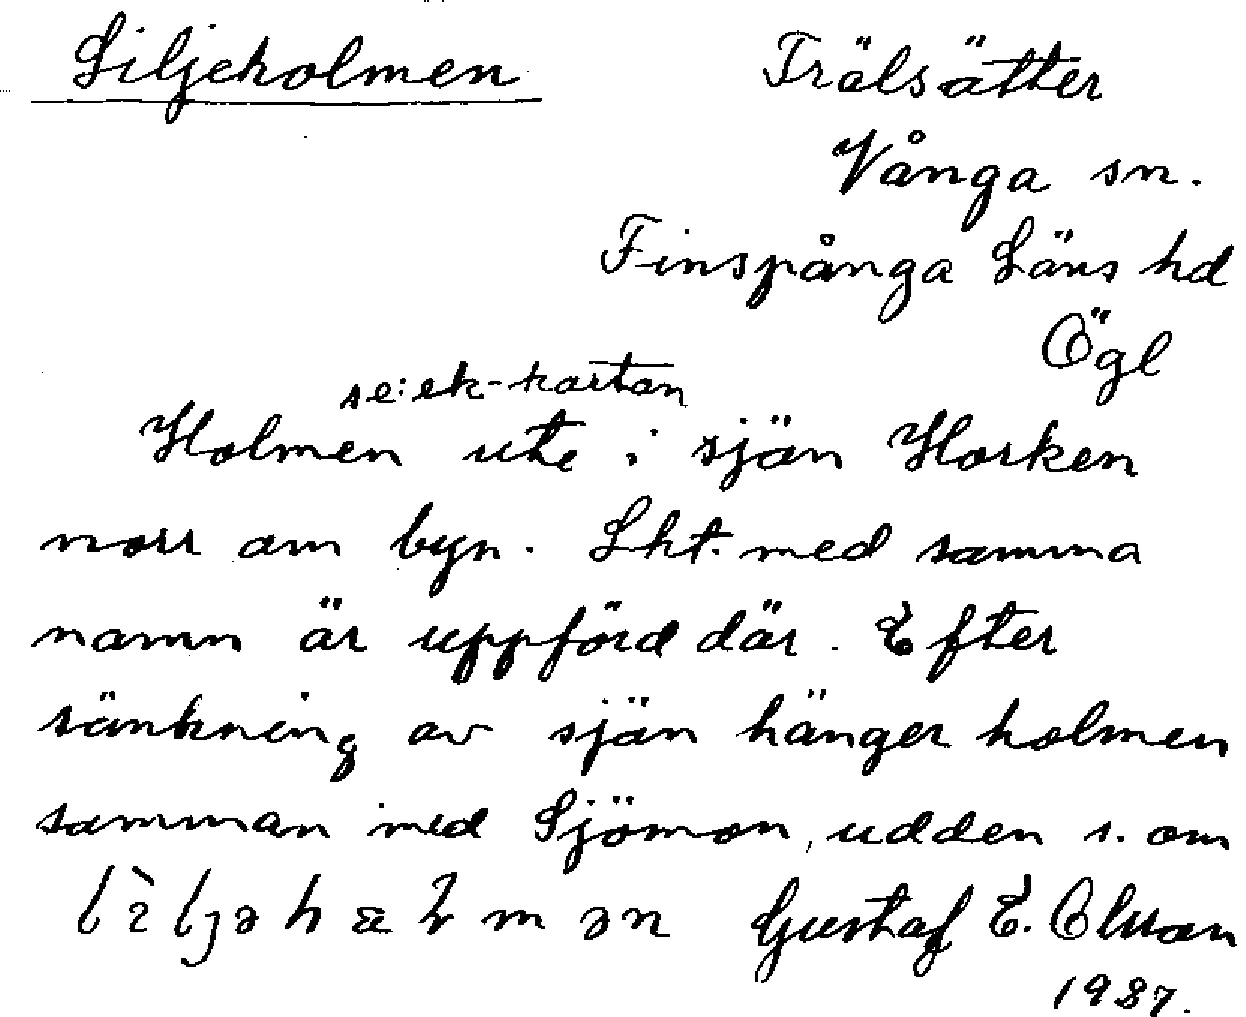 Liljeholmen
Trälsätter
Vånga sn.
Finspånga Läns hd
Ögl
se: ek-kartan
Holmen ute i sjön Horken
norr om byn. Lht. med samma
namn är uppförd där. Efter
sänkning av sjön hänger holmen
samman med Sjömon, udden s. om
Gustaf E. Olsson
1937.